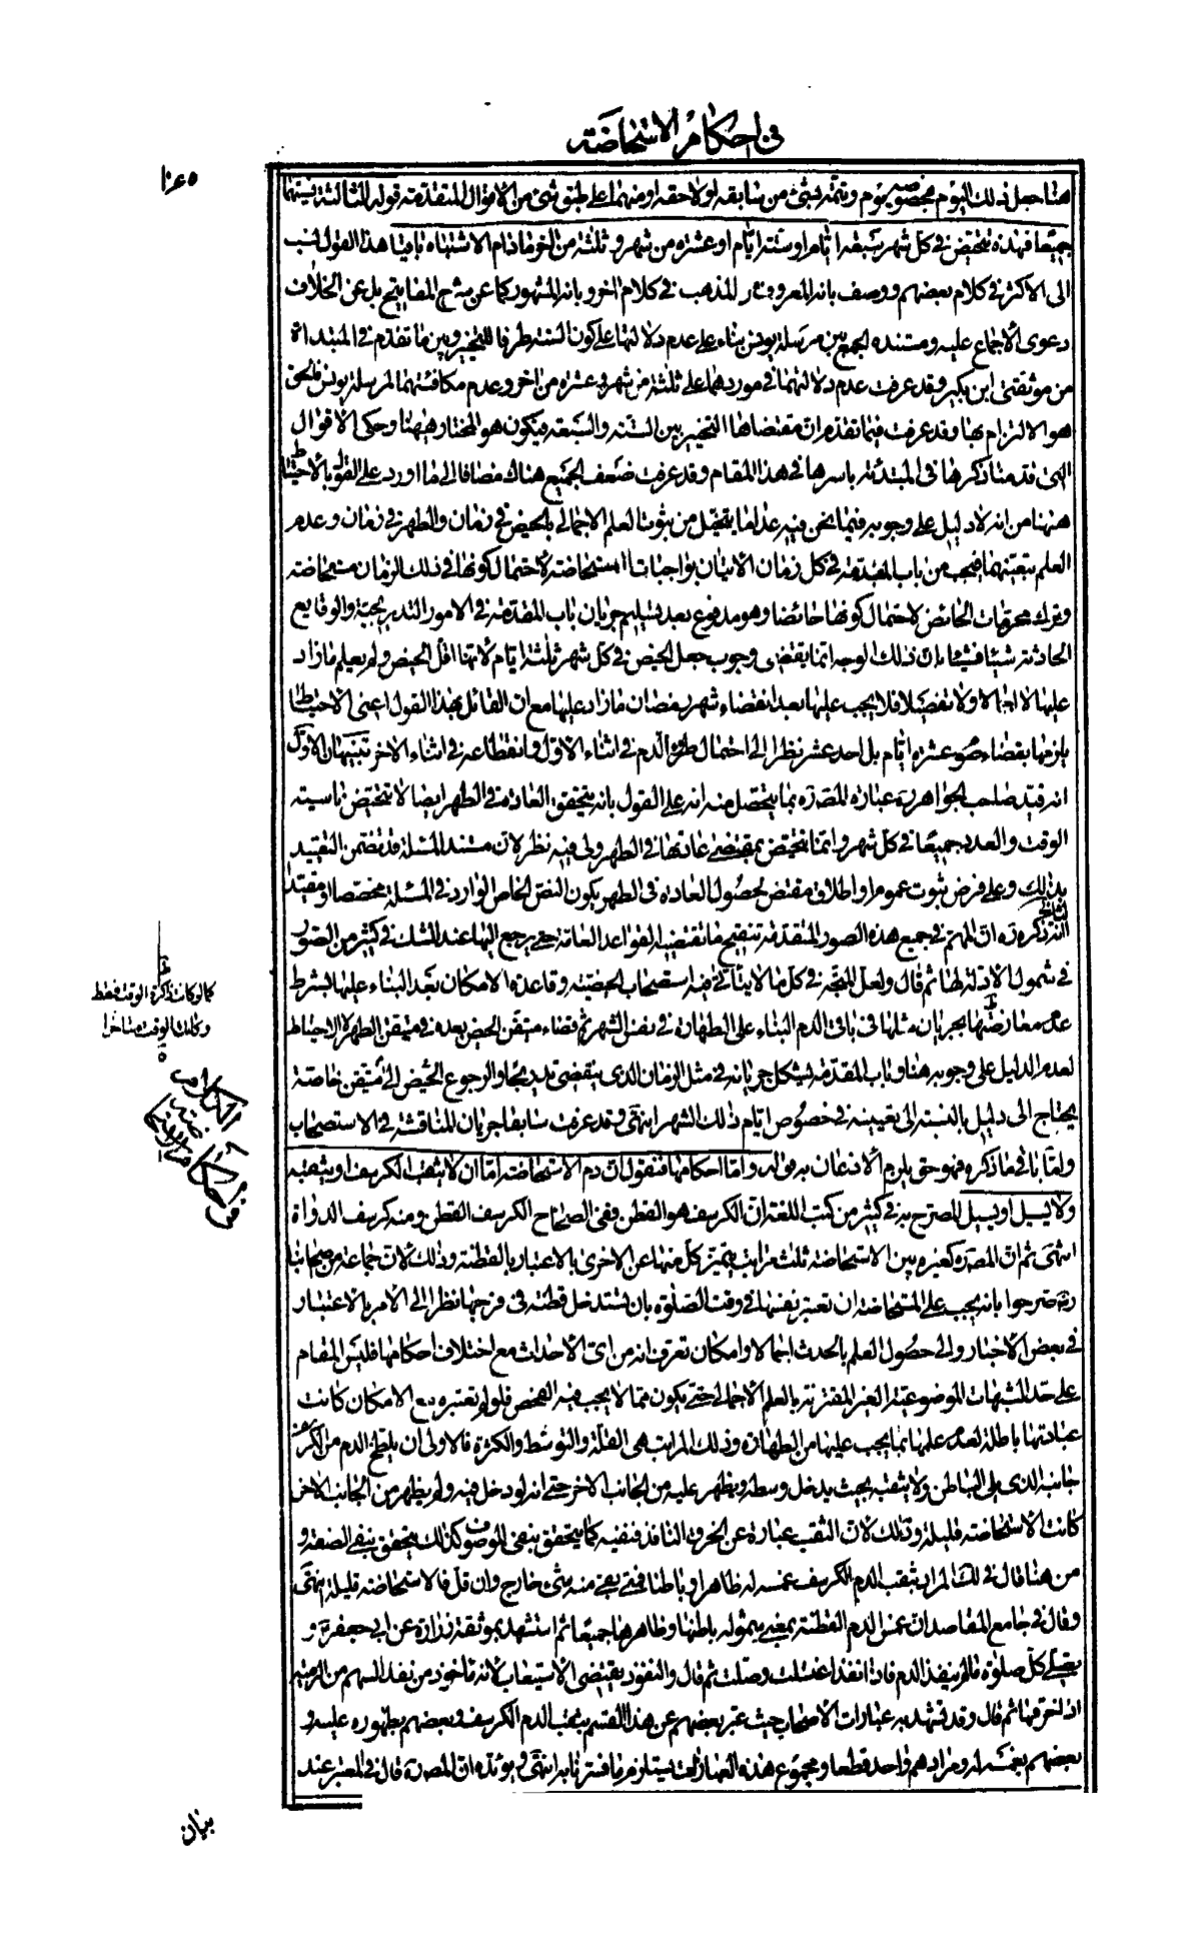 في احكام الاستحاضة
هنا جعل ذلك اليوم مخصوصه يوم وتتمه بشئ من سابقه او لاحقه او منهما على طبق شئ من الاقوال المتقدمة قوله الثالثة نسيتهما
جميعا فهذه تتحيض في كل شهر سبعة ايام او ستة ايام او عشرة من شهر وثلثة من اخر ما دام الاشتباه باقيا هذا القول نسب
الى الاكثر في كلام بعضهم ووصف بانه المعروف من المذهب في كلام اخر وبانه المشهور كما عن شرح المفاتيح بل عن الخلاف
دعوى الاجماع عليه ومستنده الجمع بين مرسلة يونس بناء على عدم دلالتها على كون الستة طرفا للتخيير وبين ما تقدم في المبتداة
من موثقتي ابن بكير وقد عرفت عدم دلالتهما في موردهما على ثلثة من شهر وعشرة من اخر وعدم مكافئتهما لمرسلة يونس فالحق
هو الالتزام بها وقد عرفت فيما تقدم ان مقتضاها التخيير بين الستة والسبعة فيكون هو المختار هيهنا وحكى الاقوال
التي قدمنا ذكرها في المبتدئة باسرها في هذا المقام وقد عرفت ضعف الجميع هناك مضافا الى ما اورد على القول بالاحتياط
هنا من انه لا دليل على وجوبه فيما نحن فيه عدا ما يتخيل من ثبوت العلم الاجمالي بالحيض في زمان والطهر في زمان وعدم
العلم بتعيينهما فيجب من باب المقدمة في كل زمان الاتيان بواجبات الاستحاضة لاحتمال كونها في ذلك الزمان مستحاضة
وترك محرمات الحائض لاحتمال كونها حائضا وهو مدفوع بعد تسليم جريان باب المقدمة في الامور التدريجية والوقايع
الحادثة شيئا فشيئا بان ذلك الوجه انما يقتضي وجوب جعل الحيض في كل شهر ثلثة ايام لانها اقل الحيض ولم يعلم ما زاد
عليها لا اجمالا ولا تفصيلا فلا يجب عليها بعد انقضاء شهر رمضان ما زاد عليها مع ان القائل بهذا القول اعني الاحتياط
يلزمها بقضاء صوم عشرة ايام بل احد عشر نظرا الى احتمال طرو الدم في اثناء الاول وانقطاعه في اثناء الاخر تنبيهان الاول
انه قيد صاحب الجواهر ره عبارة المصنف ره بما يتحصل منه انه على القول بانه يتحقق العادة في الطهر ايضا لا تتحيض ناسية
الوقت والعدد جميعا في كل شهر وانما تتحيض بمقتضى عادتها في الطهر ولي فيه نظر لان مستند المسئلة قد تضمن التقييد
بذلك وعلى فرض ثبوت عموم او اطلاق مقتض لحصول العادة في الطهر يكون النص الخاص الوارد في المسئلة مخصصا او مقيدا
الثاني
انه ذكر ره ان المهم في جميع هذه الصور المتقدمة تنقيح ما تقتضيه القواعد العامة حتى يرجع اليها عند الشك في كثير من الصور
في شمول الادلة لها ثم قال ولعل المتجه في كل ما لا ينافي فيه استصحاب الحيضية وقاعدة الامكان بعد البناء عليها بشرط
عدم معارضتها بجريان مثلها في باقي الدم البناء على الطهارة في نفس الشهر ثم قضاء متيقن الحيض بعده في متيقن الطهر لا الاحتياط
لعدم الدليل على وجوبه هنا وباب المقدمة يشكل جريانه في مثل الزمان الذي ينقضي تدريجا والرجوع الحيض الى متيقن خاصة
يحتاج الى دليل بالنسبة الى تعيينه في خصوص ايام ذلك الشهر انتهى وقد عرفت سابقا جريان المناقشة في الاستصحاب
واما باقي ما ذكره فهو حق يلزم الاذعان به قوله واما احكامها فنقول ان دم الاستحاضة اما ان لا يثقب الكرسف او يثقبه
ولا يسيل او يسيل المصرح به في كثير من كتب اللغة ان الكرسف هو القطن وفي الصحاح الكرسف القطن ومنه كرسف الدواة
انتهى ثم ان المصنف ره كغيره بين الاستحاضة ثلث مراتب يتميز كل منها عن الاخرى بالاعتبار بالقطنة وذلك لان جماعة من صحابنا
رض صرحوا بانه يجب على المستحاضة ان تعتبر نفسها في وقت الصلوة بان تستدخل قطنة في فرجها نظرا الى الامر بالاعتبار
في بعض الاخبار والى حصول العلم بالحدث اجمالا وامكان تعرف انه من اي الاحداث مع اختلاف احكامها فليس المقام
على حد الشبهات الموضوعية الغير المقترنة بالعلم الاجمالي حتى يكون مما لا يجب فيه الفحص فلو لم تعتبره مع الامكان كانت
عبادتها باطلة لعدم علمها بما يجب عليها من الطهارة وذلك المراتب هي القلة والتوسط والكثرة فالاولى ان يلطخ الدم من الكرسف
جانبه الذي يلي الباطن ولا يثقبه بحيث يدخل وسطه ويظهر عليه من الجانب الاخر حتى انه لو دخل فيه ولم يظهر من الجانب الاخر
كانت الاستحاضة قليلة وذلك لان الثقب عبارة عن الخرق النافذ فنفيه كما يتحقق بنفي الموصوف كذلك يتحقق بنفي الصفة و
من هنا قال في لك المراد بثقب الدم الكرسف غمسه له ظاهرا وباطنا فمتى بقي منه شئ خارج وان قل فالاستحاضة قليلة انتهى
وقال في جامع المقاصد ان غمس الدم القطنة بمعنى شموله باطنها وظاهرها جميعا ثم استشهد بموثقة زرارة عن ابي جعفر ع و
تصلي كل صلوة ما لم ينفذ الدم فاذا نفذ اغتسلت وصلت ثم قال والنفوذ يقتضي الاستيعاب لانه ماخوذ من نفذ السهم من الرمية
اذا خرقها ثم قال وقد تشهد به عبارات الاصحاب حيث عبر بعضهم عن هذا القسم بثقب الدم الكرسف وبعضهم بظهوره عليه و
بعضهم بغمسه له ومرادهم واحد قطعا ومجموع هذه العبارات يستلزم ما فسرنا به انتهى ويؤيده ان المصنف ره قال في المعتبر عند
كما لو كانت ذاكرة الوقت فقط
وكان الوقت متاخرا
الكلام
في احكام الاستحاضة
بيان